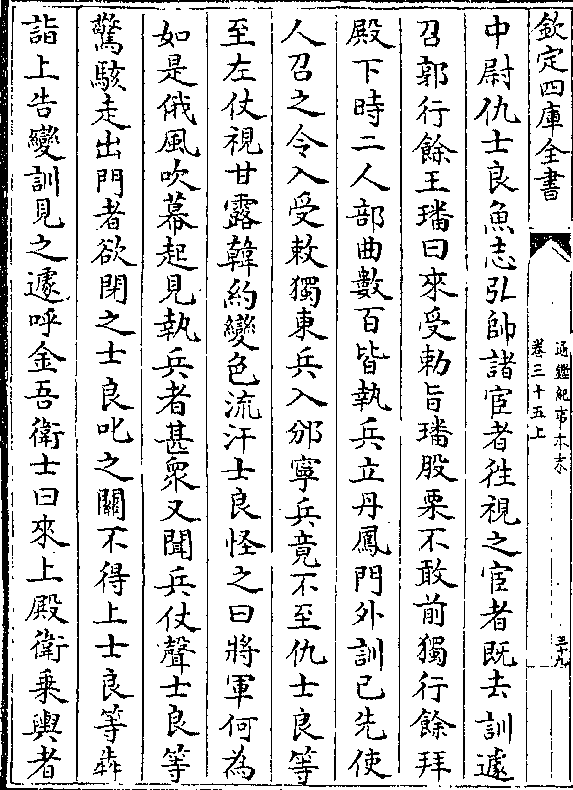 欽定四庫全書
通鑑紀事本末
卷三十五上
三十九
中尉仇士良魚志弘帥諸宦者往視之宦者既去訓遽
召郭行餘王璠曰來受勅旨璠股栗不敢前獨行餘拜
殿下時二人部曲數百皆執兵立丹鳳門外訓已先使
人召之令入受敕獨東兵入邠寧兵竟不至仇士良等
至左仗視甘露韓約變色流汗士良怪之曰將軍何為
如是俄風吹幕起見執兵者甚衆又聞兵仗聲士良等
驚駭走出門者欲閉之士良叱之關不得上士良等犇
詣上告變訓見之遽呼金吾衛士曰來上殿衛乗輿者